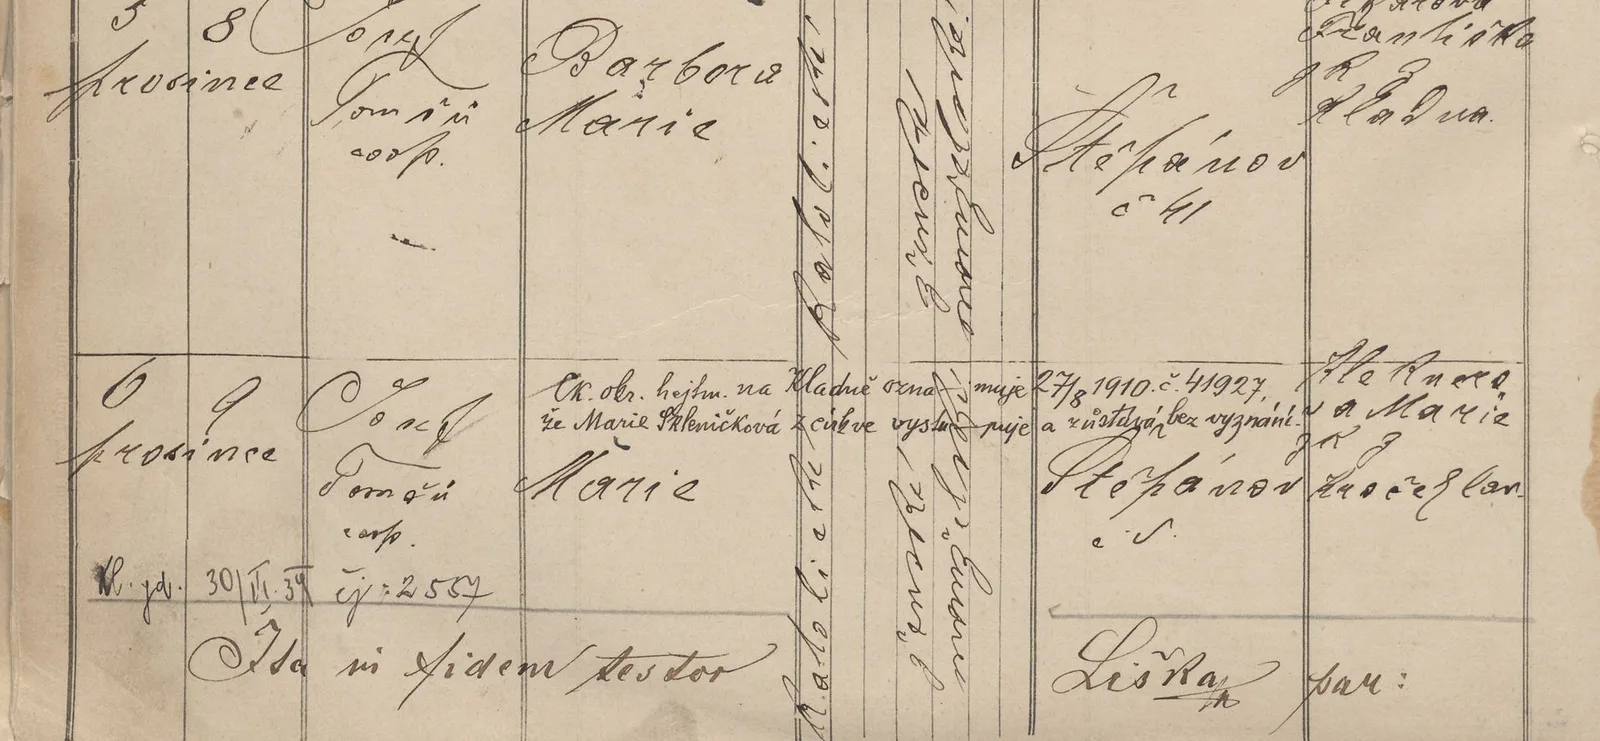 5 8
prosince
Josef
Tomšů
coop.
Barbora
Marie
Katolické
Manželské
Ženské
Štěpánov
č 41
Františka
z K
Kladna.
6 9
prosince
Josef
Tomšů
coop.
Ck. okr. hejtm. na Kladně oznamuje 27/8 1910.č. 41927,
že Marie Skleničková z církve vystupuje a zůstává bez vyznání.
Marie
Katolické
Manželské
Ženské
Štěpánov
č 5.
a Marie
z K
Kročehlav
Kl. yd. 30/VI.39 čj: 2557
Ita in fidem testor
Liška
par: